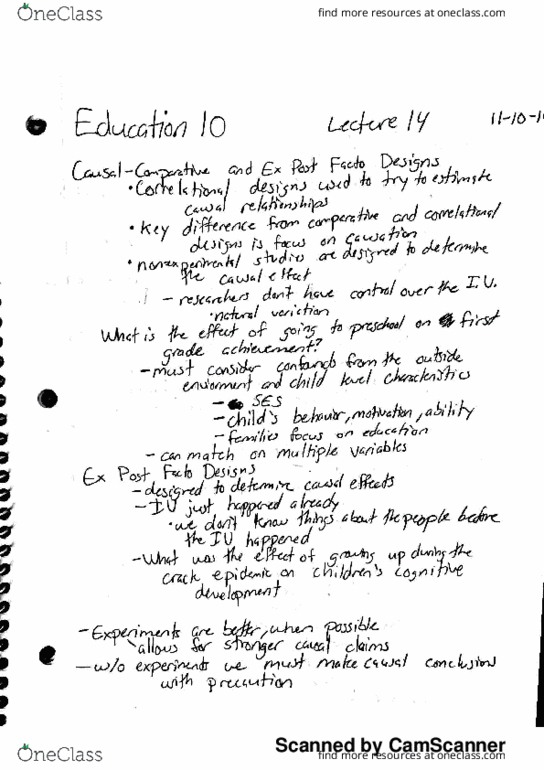 OneClass
find more resources at oneclass.com
Education 10 Lecture 14 11-10-1
Causal-Comparative and Ex Post Facto Designs
• Correlational designs used to try to estimate
causal relationships
• Key difference from comparative and correlational
designs is focus on causation
• nonexperimental studies are designed to determine
the causal effect
- researchers don't have control over the I.V.
• natural variation
What is the effect of going to preschool on first
grade achievement?
- must consider confounds from the outside
enviorment and child level characteristics
- SES
- child's behavior, motivation, ability
- families focus on education
- can match on multiple variables
Ex Post Facto Designs
- designed to determine causal effects
- IV just happened already
• we don't know things about the people before
the IV happened
- What was the effect of growing up during the
crack epidemic on children's cognitive
development
- Experiments are better, when possible
allows for stronger causal claims
- w/o experiments we must make causal conclusions
with precaution
Scanned by CamScanner
OneClass
find more resources at oneclass.com